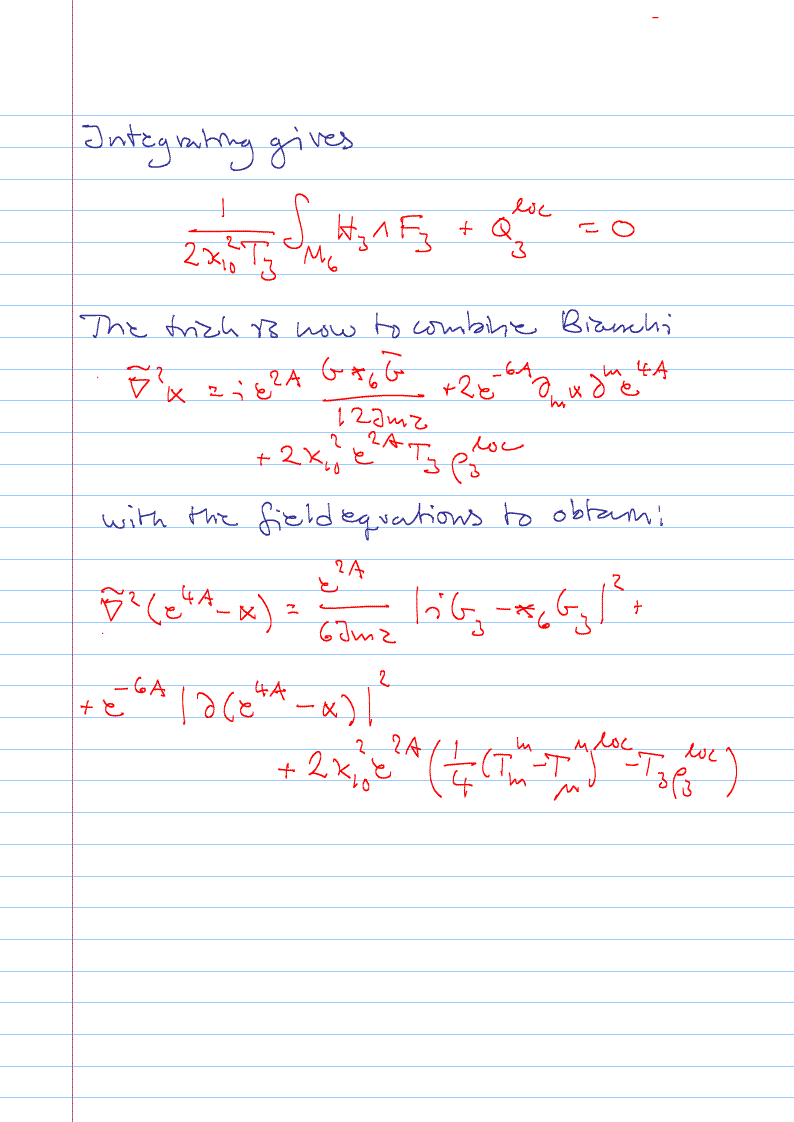 Integrating gives
1/(2κ₁₀²T₃) ∫_M₆ H₃ ∧ F₃ + Q₃^loc = 0
The trick is now to combine Bianchi
∇̃²α = i e^{2A} (G *₆ Ḡ)/(12 Im τ) + 2e^{-6A} ∂_m α ∂^m e^{4A}
+ 2κ₁₀² e^{2A} T₃ ρ₃^loc
with the field equations to obtain:
∇̃²(e^{4A} - α) = e^{2A}/(6 Im τ) |iG₃ - *₆ G₃|² +
+ e^{-6A} |∂(e^{4A} - α)|²
+ 2κ₁₀² e^{2A} (1/4 (T_m^m - T_μ^μ)^loc - T₃ ρ₃^loc)